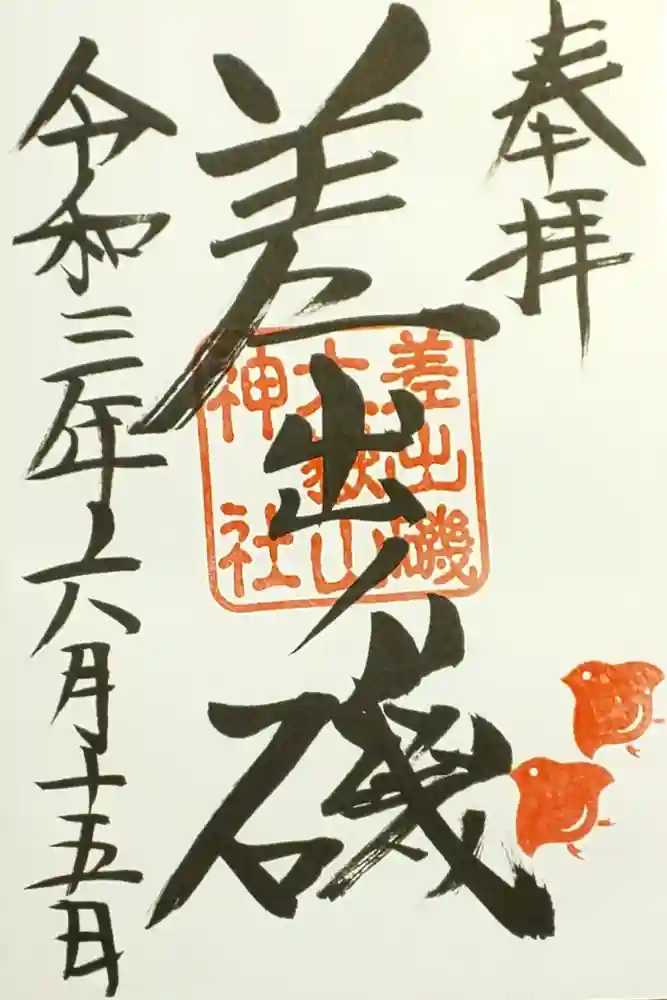 奉拝
差出ノ磯
差出磯
大嶽山
神社
令和三年六月十五日